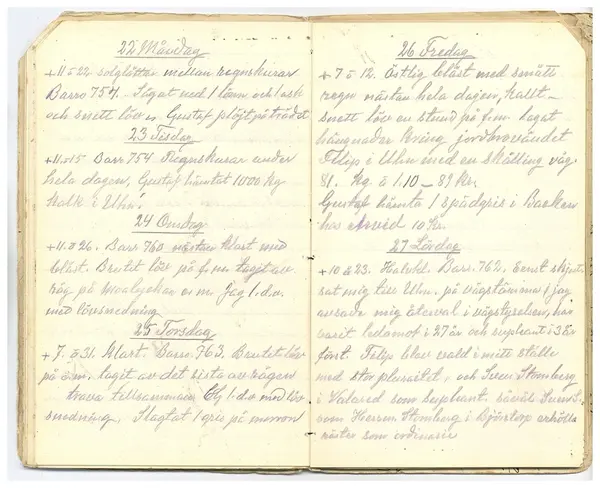 22 Måndag
+11 o 22 solglöttar mellan regnskurar
Barro 754. Sågat ned 1 lönn och 1 ask
och snett löv. Gustaf plöjt på trädet
23 Tisdag
+11 o 15 Baro 754 Regnskurar under
hela dagen, Gustaf hämtat 1000 kg
kalk i Ulvn!
24 Onsdag
+11. o 26. Baro 760 nästan klart med
blåst. Brutet löv på f.m. taget av
råg på e.m. Jag 1.d.v.
med lövsmedning
25 Torsdag
+7. o 31. Klart. Baro. 763. Brutet löv
på e.m. taget av det sista av rågen
trava tillsamman 1.d.v med löv
snedning. Slagtat 1 gris på morron
26 Fredag
+7 o 12. Östlig blåst med smått
regn nästan hela dagen, Kallt –
snett löv en stund på f.m. lagat
hängnader kring jordbrovändet
Filip i Ulvn med en skälling väg.
81. Kg. á 1.10 – 89 Kr.
Gustaf hämta 1 spädgris i Backen
hos 10 Kr.
27 Lördag
+10 o 23. Halvkl. Baro. 762. Ernst skjut-
sat mig till Ulvn. på vägstämma, jag
avsade mig återval i vägstyrelsen, har
varit ledamot i 27 år och supliant i 3 år
först. Filip blev vald i mitt ställe
med stor pluralitet, och Sven Stomberg
i Valared som suplant. såväl Sven S.
som Herren Stomberg i Björstorp erhöllo
röster som ordinarie